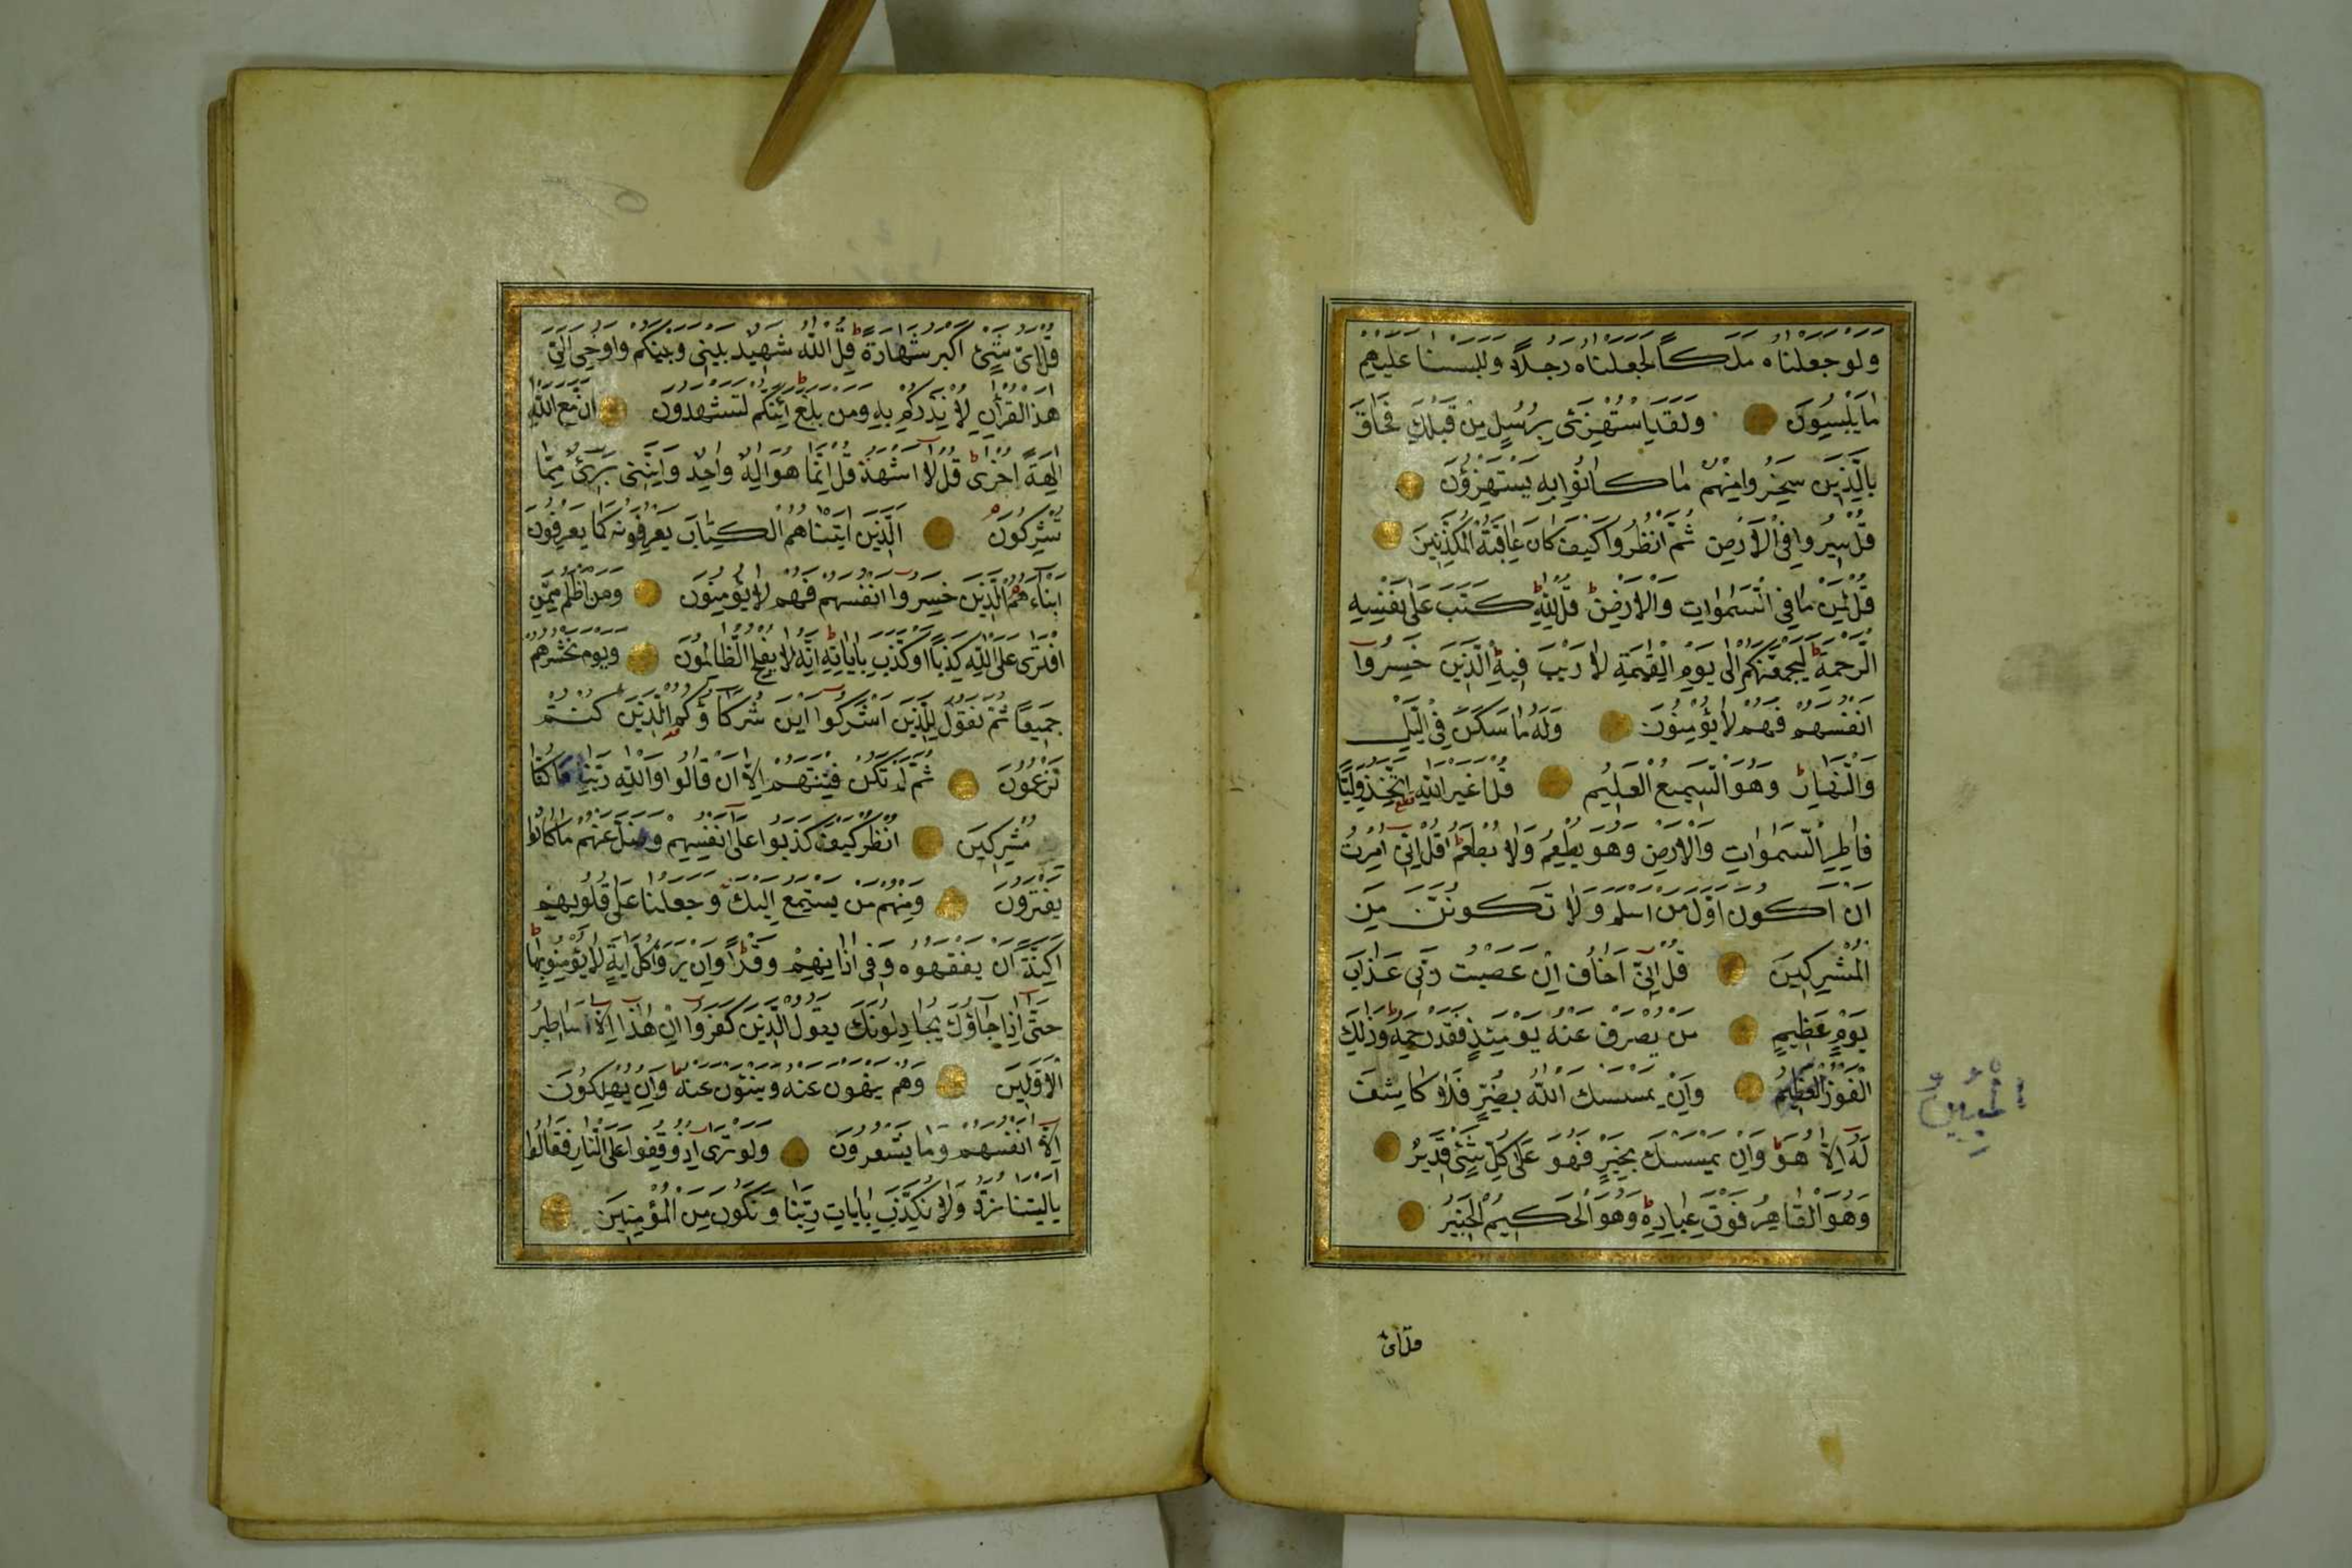 ولو جعلناه ملكا لجعلناه رجلا وللبسنا عليهم
ما يلبسون ولقد استهزئ برسل من قبلك فحاق
بالذين سخروا منهم ما كانوا به يستهزؤن
قل سيروا في الارض ثم انظروا كيف كان عاقبة المكذبين
قل لمن ما في السموات والارض قل لله كتب على نفسه
الرحمة ليجمعنكم الى يوم القيمة لا ريب فيه الذين خسروا
انفسهم فهم لا يؤمنون وله ما سكن في الليل
والنهار وهو السميع العليم قل اغير الله اتخذ وليا
فاطر السموات والارض وهو يطعم ولا يطعم قل اني امرت
ان اكون اول من اسلم ولا تكونن من
المشركين قل اني اخاف ان عصيت ربي عذاب
يوم عظيم من يصرف عنه يومئذ فقد رحمه وذلك
الفوز وان يمسسك الله بضر فلا كاشف
له الا هو وان يمسسك بخير فهو على كل شئ قدير
وهو القاهر فوق عباده وهو الحكيم الخبير
قل اى
قل اى شئ اكبر شهادة قل الله شهيد بيني وبينكم واوحي الي
هذا القران لانذركم به ومن بلغ ائنكم لتشهدون ان مع الله
الهة اخرى قل لا اشهد قل انما هو اله واحد وانني برئ مما
تشركون الذين اتيناهم الكتاب يعرفونه كما يعرفون
ابناءهم الذين خسروا انفسهم فهم لا يؤمنون ومن اظلم ممن
افترى على الله كذبا او كذب باياته انه لا يفلح الظالمون ويوم نحشرهم
جميعا ثم نقول للذين اشركوا اين شركاؤكم الذين كنتم
تزعمون ثم لم تكن فتنتهم الا ان قالوا والله ربنا ما كنا
مشركين انظر كيف كذبوا على انفسهم وضل عنهم ما كانوا
يفترون ومنهم من يستمع اليك وجعلنا على قلوبهم
اكنة ان يفقهوه وفي اذانهم وقرا وان يروا كل اية لا يؤمنوا بها
حتى اذا جاؤك يجادلونك يقول الذين كفروا ان هذا الا اساطير
الاولين وهم ينهون عنه وينئون عنه وان يهلكون
الا انفسهم وما يشعرون ولو ترى اذ وقفوا على النار فقالوا
ياليتنا نرد ولا نكذب بايات ربنا ونكون من المؤمنين